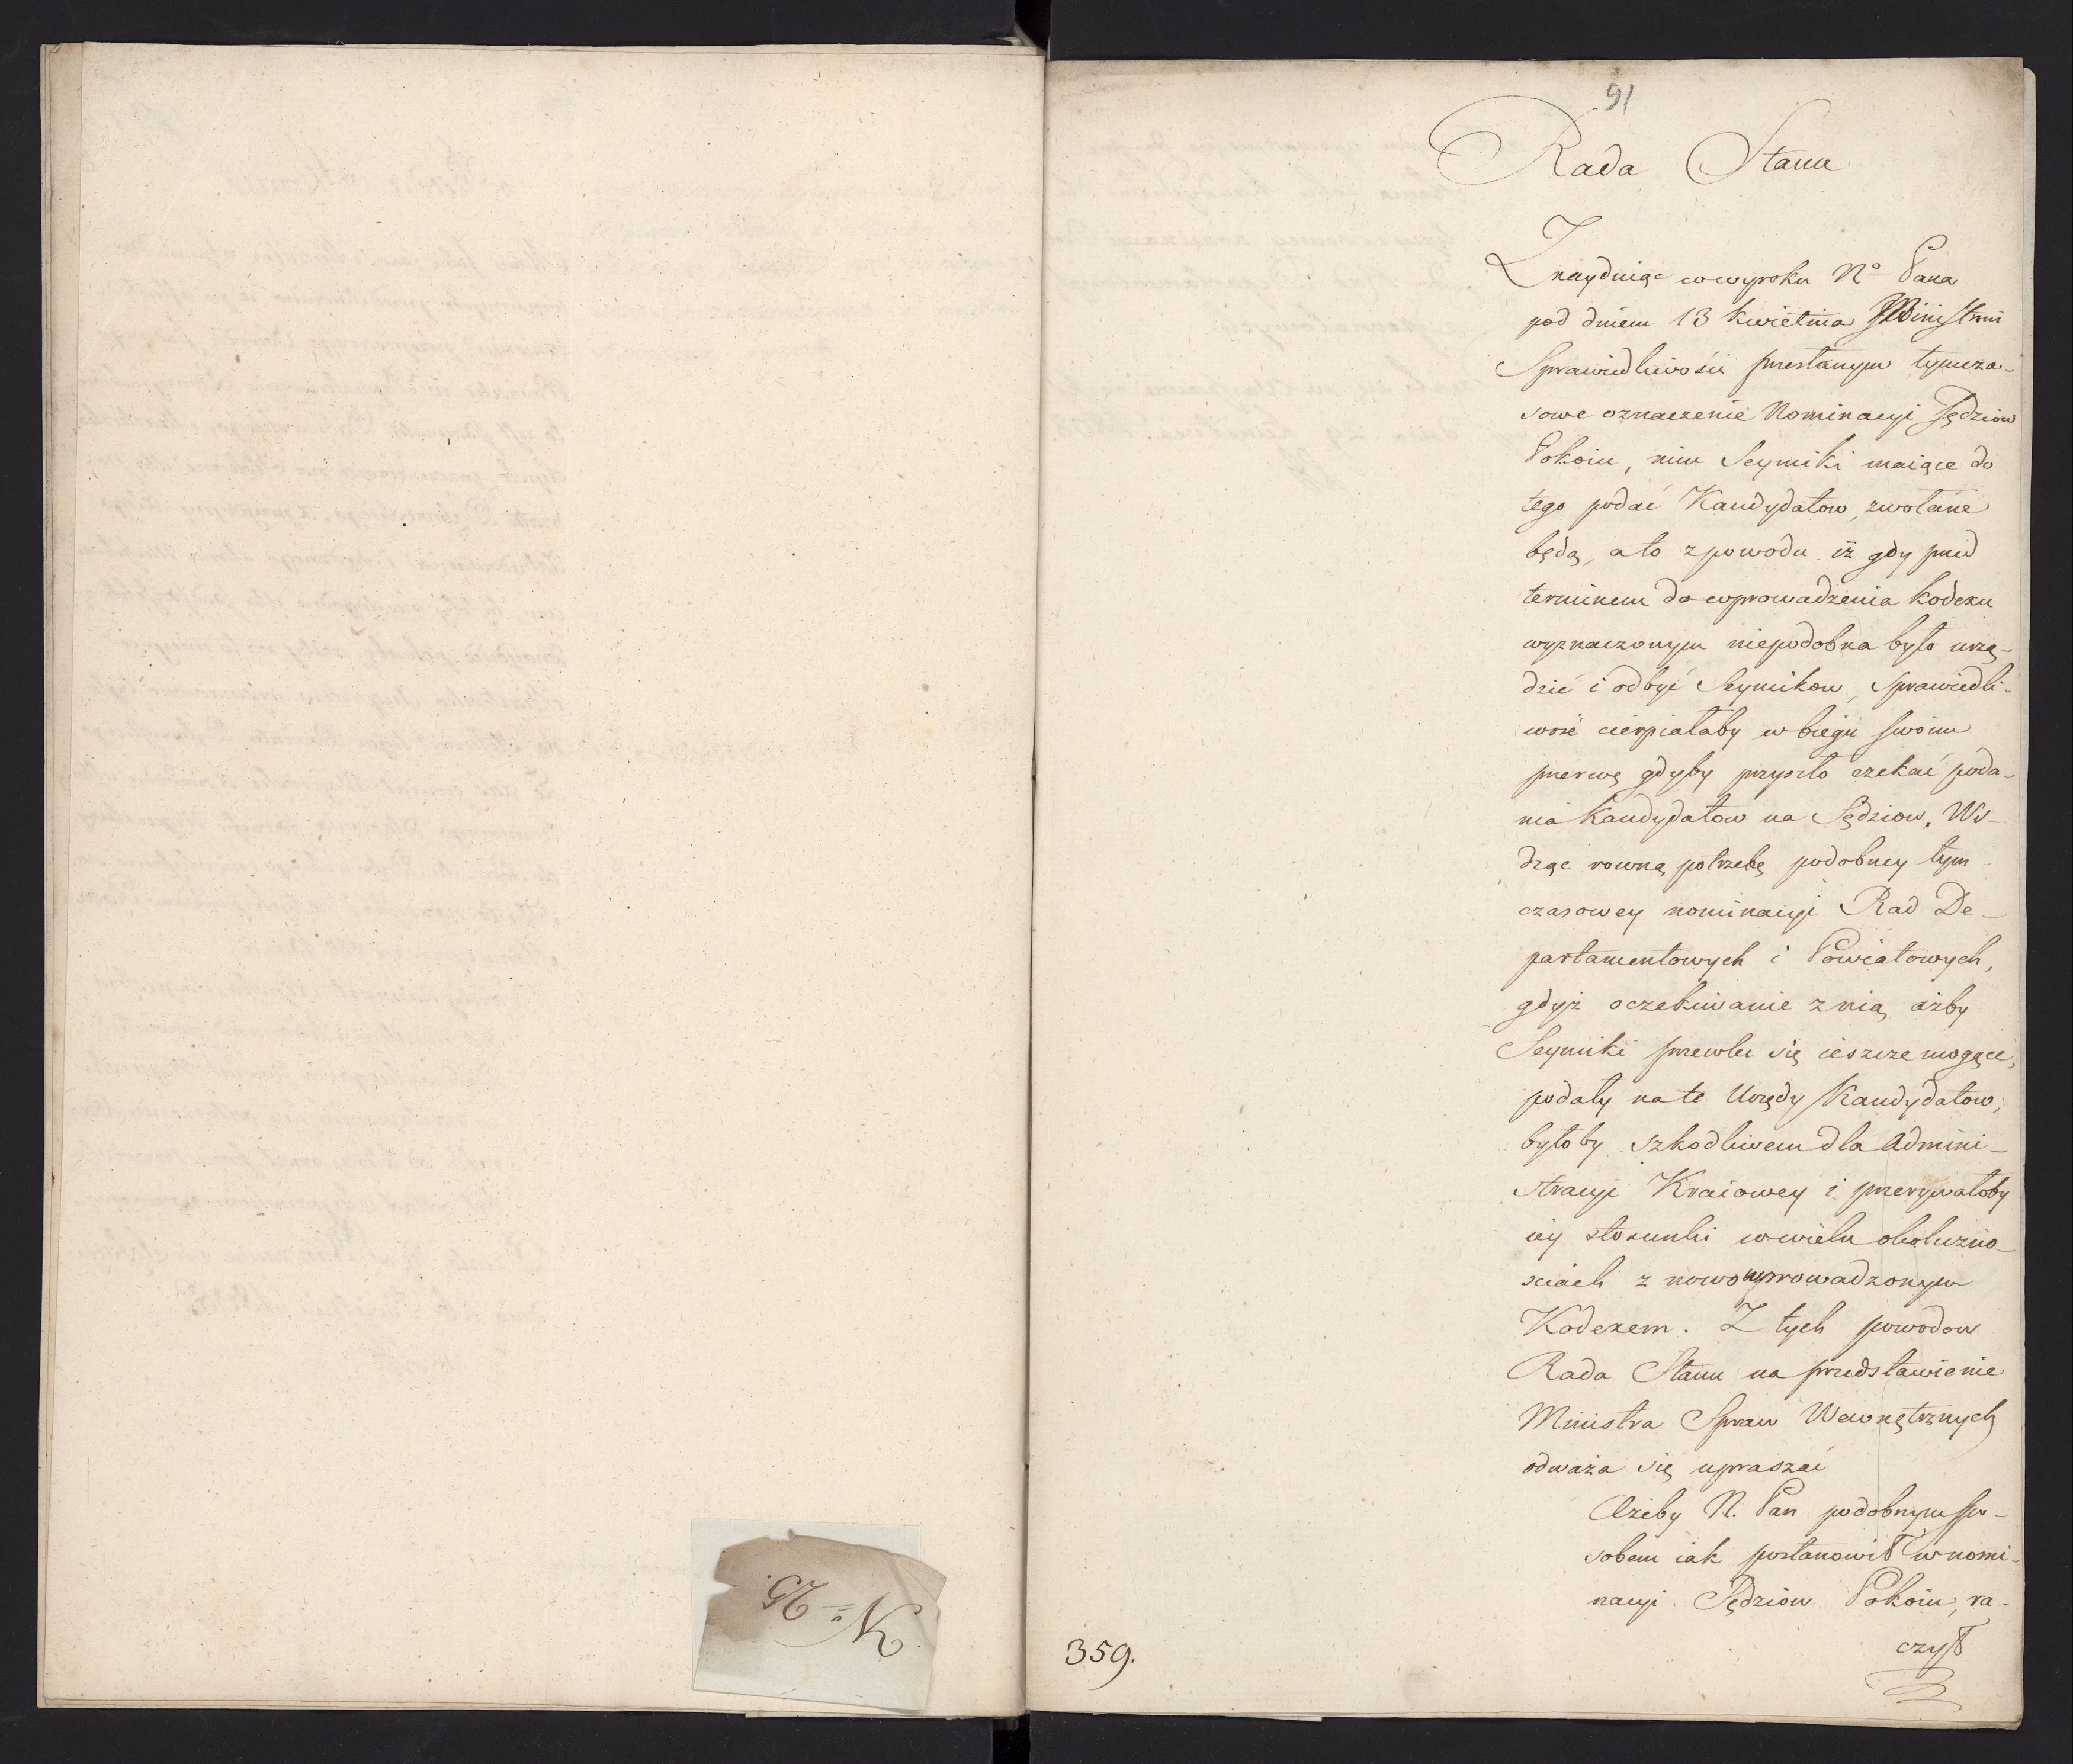 91
Rada Stanu
Znayduiąc w wyroku No Pana
pod dniem 13 Kwietnia Ministrowi
Sprawiedliwości przesłanym tymcza-
sowe oznaczenie Nominacyi Sędziow
Pokoiu, nim Seymiki maiące do
tego podać Kandydatow, zwołane
będą, a to z powodu iż gdy przed
terminem do wprowadzenia kodexu
wyznaczonym niepodobna było urzą-
dzić i odbyć Seymikow, Sprawiedli-
wość cierpiałaby w biegu swoim
przerwę gdyby przyszło czekać poda-
nia Kandydatow na Sędziow. Wi-
dząc rowną potrzebę podobney tym
czasowey nominacyi Rad De-
partamentowych i Powiatowych,
gdyż oczekiwanie z nią ażby
Seymiki przewlec się ieszcze mogące,
podały na te Urzędy Kandydatow,
byłoby szkodliwem dla Admini-
stracyi Kraiowey i przerywałoby
iey stosunki w wielu okoliczno-
sciach z nowowprowadzonym
Kodexem. Z tych powodow
Rada Stanu na przedstawienie
Ministra Spraw Wewnętrznych
odważa się upraszać
Ażeby N. Pan podobnym spo-
sobem iak postanowił w nomi-
nacyi Sędziow Pokoiu, ra-
czył
359.
N= 25.